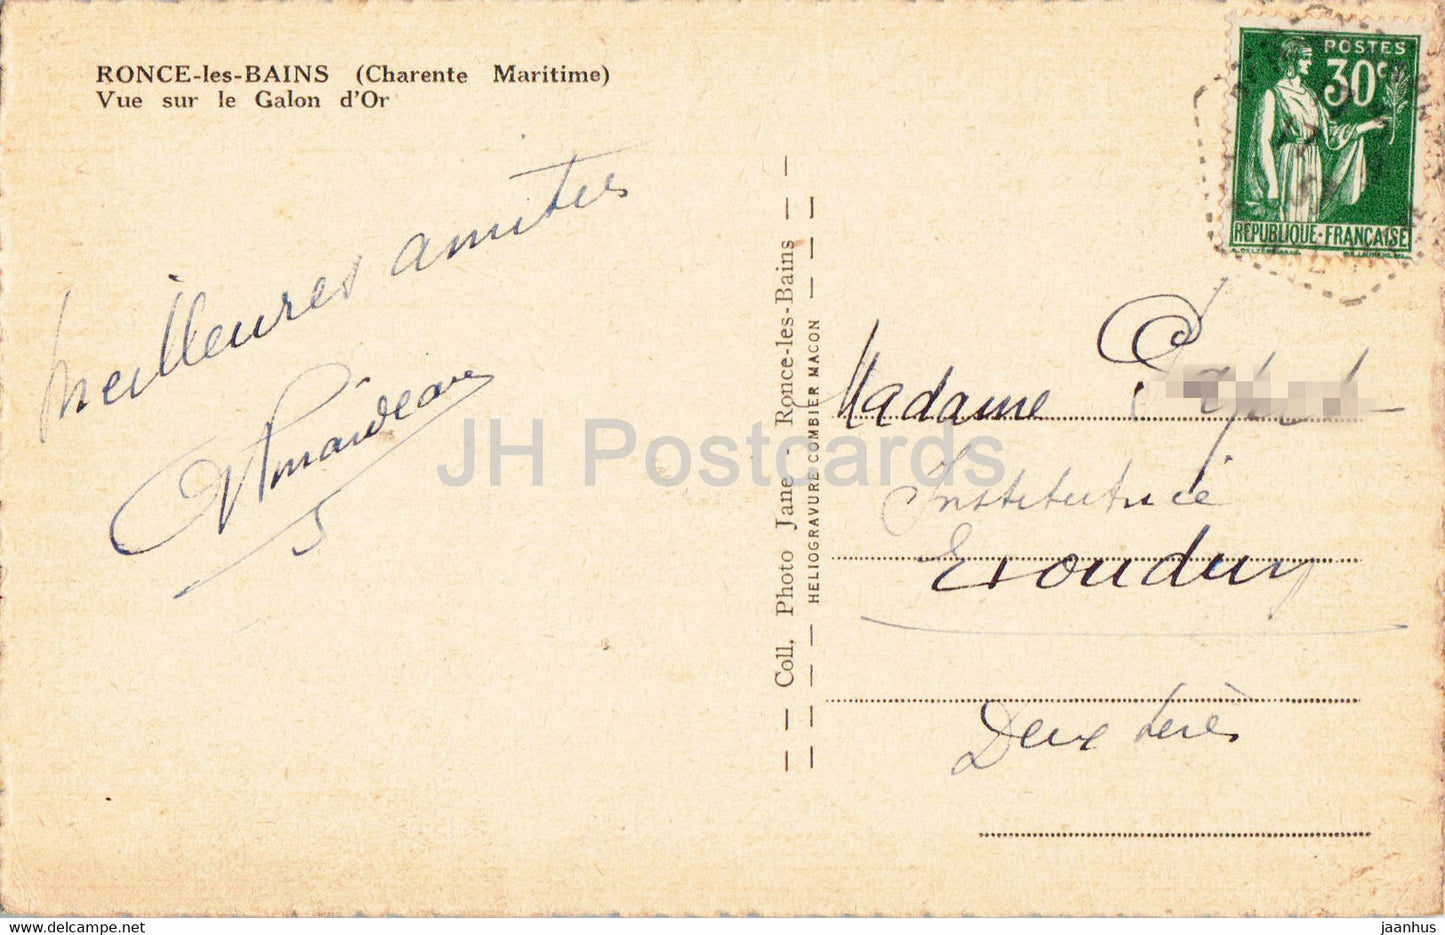 RONCE-les-BAINS (Charente Maritime)
Vue sur le Galon d'Or
POSTES
30c
REPUBLIQUE·FRANÇAISE
Meilleures amitiés
Coll. Photo Jane - Ronce-les-Bains
HELIOGRAVURE COMBIER MACON
Madame
Institutrice
Exoudun
Deux Sèvres
JH Postcards
www.delcampe.net
jaanhus